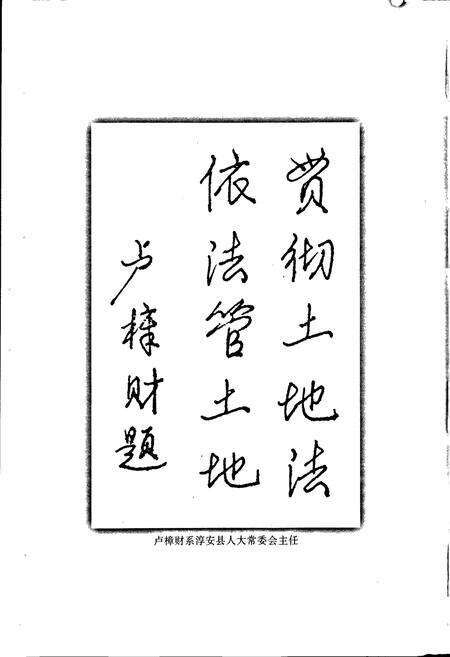 贯彻土地法
依法管土地
卢樟财题
卢樟财系淳安县人大常委会主任